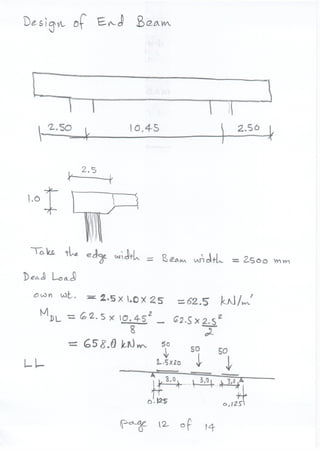 Design of End Beam
2.50 10.45 2.50
2.5
1.0
Take the edge width = Beam width = 2500 mm
Dead Load
own wt. = 2.5 x 1.0 x 25 = 62.5 kN/m'
M_DL = 62.5 x 10.45² / 8 - 62.5 x 2.5² / 2
= 658.0 kNm
50 50 50
LL
2.5x20
A 3.0 3.0 A
0.125 0.125
page 12 of 14